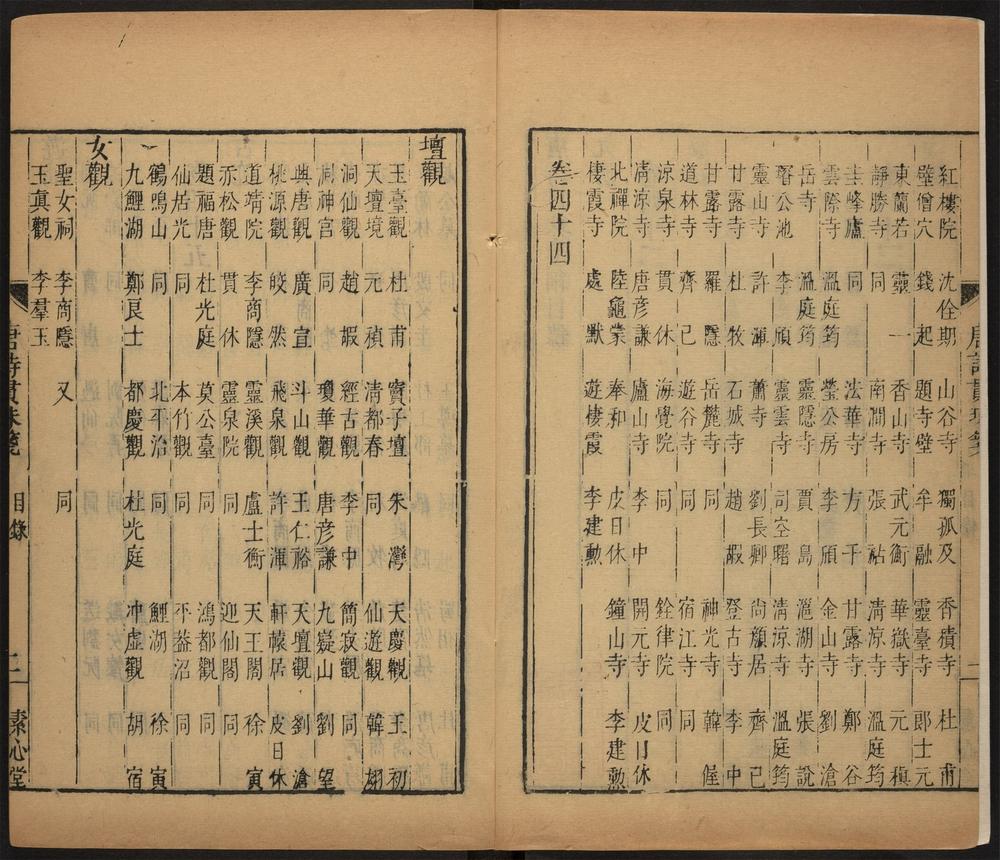 紅樓院 沈佺期 山谷寺 獨孤及 香積寺 杜甫
壁僧穴 錢起 題寺壁 牟融 靈臺寺 郎士元
東蘭若 靈一 香山寺 武元衡 華嶽寺 元稹
靜勝寺 同 南澗寺 張祜 清涼寺 溫庭筠
圭峰廬 同 法華寺 方干 甘露寺 鄭谷
雲際寺 溫庭筠 瑩公房 李頎 金山寺 劉滄
岳寺 溫庭筠 靈隱寺 賈島 滬湖寺 張說
璿公池 李頎 靈雲寺 司空曙 清涼寺 溫庭筠
靈山寺 許渾 蕭寺 劉長卿 尚顏居 齊己
甘露寺 杜牧 石城寺 趙嘏 登古寺 李中
甘露寺 羅隱 岳麓寺 同 神光寺 韓偓
道林寺 齊己 遊谷寺 同 宿江寺 同
涼泉寺 貫休 海覺院 同 銓律院 同
清涼寺 唐彥謙 廬山寺 李中 開元寺 皮日休
北禪院 陸龜蒙 奉和 皮日休 鐘山寺 李建勳
棲霞寺 處默 遊棲霞 李建勳
卷四十四
壇觀
玉臺觀 杜甫 竇子壇 朱灣 天慶觀 王初
天壇境 元稹 清都春 同 仙遊觀 韓翃
洞仙觀 趙嘏 經古觀 李中 簡寂觀 同
洞神宮 同 瓊華觀 唐彥謙 九嶷山 劉望
興唐觀 廣宣 斗山觀 王仁裕 天壇觀 劉滄
桃源觀 皎然 飛泉觀 許渾 軒轅居 皮日休
道靖院 李商隱 靈溪觀 盧士衡 天王閣 徐寅
赤松觀 貫休 靈泉院 同 迎仙閣 同
題福唐 杜光庭 莫公臺 同 鴻都觀 同
仙居光 同 本竹觀 同 平葢沼 同
鶴鳴山 同 北平治 同 鯉湖 徐寅
九鯉湖 鄭良士 都慶觀 杜光庭 冲虛觀 胡宿
女觀
聖女祠 李商隱 又 同
玉真觀 李羣玉
唐詩貫珠箋 目錄 三 素心堂